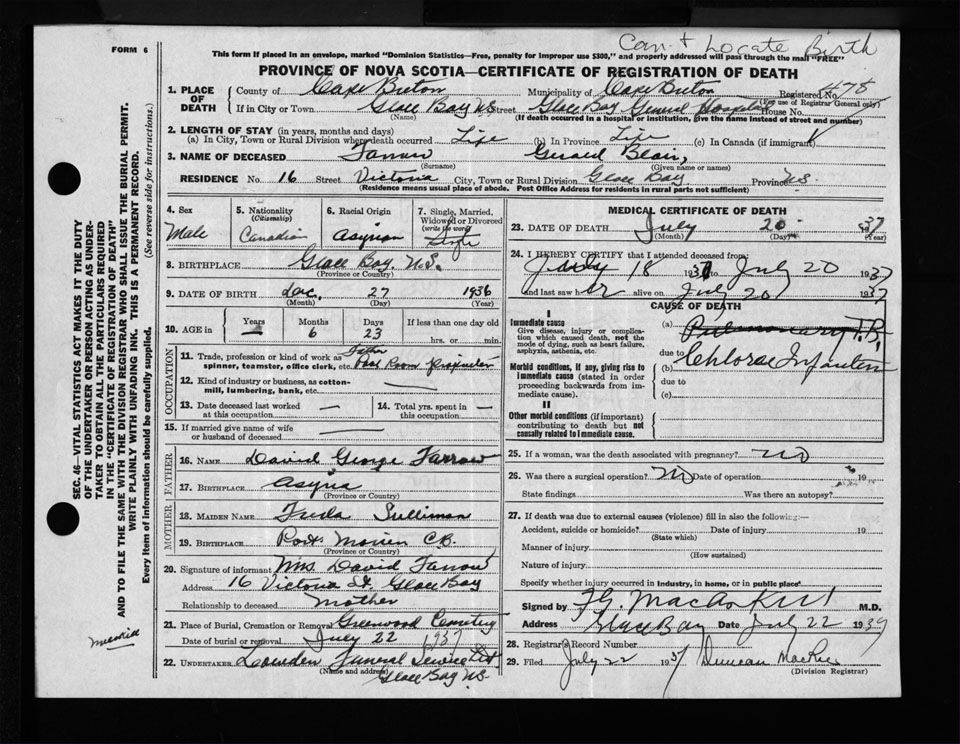 FORM 6
Can't Locate Birth
This form if placed in an envelope, marked "Dominion Statistics—Free, penalty for improper use $300," and properly addressed will pass through the mail "FREE"
PROVINCE OF NOVA SCOTIA—CERTIFICATE OF REGISTRATION OF DEATH
1. PLACE OF DEATH County of Cape Breton Municipality of Cape Breton Registered No. 478
(For use of Registrar General only)
If in City or Town Glace Bay N.S. Street Glace Bay General Hospital House No.
(Name) (If death occurred in a hospital or institution, give the name instead of street and number)
2. LENGTH OF STAY (in years, months and days)
(a) In City, Town or Rural Division where death occurred Life (b) In Province Life (c) In Canada (if immigrant)
3. NAME OF DECEASED Farrow Gerard Blair,
(Surname) (Given name or names)
RESIDENCE No. 16 Street Victoria City, Town or Rural Division Glace Bay Province N.S.
(Residence means usual place of abode. Post Office Address for residents in rural parts not sufficient)
4. Sex Male
5. Nationality (Citizenship) Canadian
6. Racial Origin Asyrian
7. Single, Married, Widowed or Divorced (write the word) Single
8. BIRTHPLACE Glace Bay. N.S.
(Province or Country)
9. DATE OF BIRTH Dec. 27 1936
(Month) (Day) (Year)
10. AGE in Years — Months 6 Days 23 If less than one day old
hrs. or min.
OCCUPATION
11. Trade, profession or kind of work as spinner, teamster, office clerk, etc. Father Pool Room Proprietor
12. Kind of industry or business, as cotton-mill, lumbering, bank, etc. —
13. Date deceased last worked at this occupation — 14. Total yrs. spent in this occupation —
15. If married give name of wife or husband of deceased —
FATHER
16. NAME David George Farrow
17. BIRTHPLACE Asyria
(Province or Country)
MOTHER
18. MAIDEN NAME Sulliman
19. BIRTHPLACE Port Morien C.B.
(Province or Country)
20. Signature of informant Mrs David Farrow
Address 16 Victoria St. Glace Bay
Relationship to deceased Mother
21. Place of Burial, Cremation or Removal Greenwood Cemetery
Date of burial or removal July 22 1937
22. UNDERTAKER Lowden Funeral Service Ltd
(Name and address) Glace Bay N.S.
MEDICAL CERTIFICATE OF DEATH
23. DATE OF DEATH July 20 1937
(Month) (Day) (Year)
24. I HEREBY CERTIFY that I attended deceased from:
July 18 1937 to July 20 1937
and last saw h er alive on July 20 1937
CAUSE OF DEATH
I
Immediate cause
Give disease, injury or complication which caused death, not the mode of dying, such as heart failure, asphyxia, asthenia, etc.
(a) Pulmonary T.B.
due to
Morbid conditions, if any, giving rise to immediate cause (stated in order proceeding backwards from immediate cause).
(b) Cholera Infantum
due to
(c)
II
Other morbid conditions (if important) contributing to death but not causally related to immediate cause.
25. If a woman, was the death associated with pregnancy? no
26. Was there a surgical operation? no Date of operation 19
State findings Was there an autopsy?
27. If death was due to external causes (violence) fill in also the following:—
Accident, suicide or homicide? Date of injury 19
(State which)
Manner of injury
(How sustained)
Nature of injury
Specify whether injury occurred in industry, in home, or in public place
Signed by M.D.
Address Glace Bay Date July 22 1937
28. Registrar's Record Number
29. Filed July 22 1937 Duncan
(Division Registrar)
SEC. 46—VITAL STATISTICS ACT MAKES IT THE DUTY
OF THE UNDERTAKER OR PERSON ACTING AS UNDERTAKER TO OBTAIN ALL THE PARTICULARS REQUIRED
IN THE "CERTIFICATE OF REGISTRATION OF DEATH"
AND TO FILE THE SAME WITH THE DIVISION REGISTRAR WHO SHALL ISSUE THE BURIAL PERMIT.
WRITE PLAINLY WITH UNFADING INK. THIS IS A PERMANENT RECORD.
Every item of information should be carefully supplied. (See reverse side for instructions.)